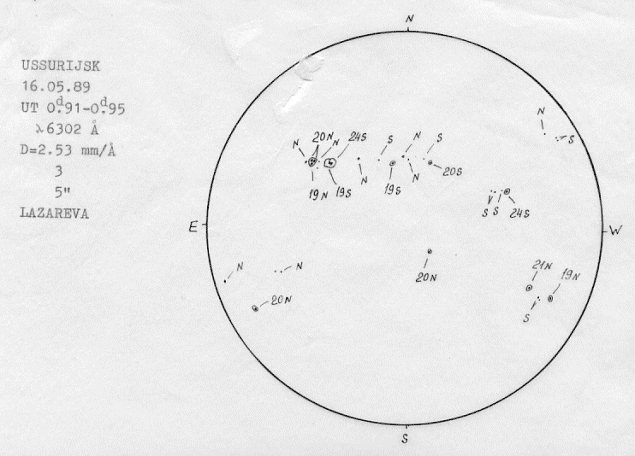 USSURIJSK
16.05.89
UT 0ᵈ.91-0ᵈ.95
λ6302 Å
D=2.53 mm/Å
3
5"
LAZAREVA
N
N
S
N 20N N 24S S N S
19N 19S N 19S N 20S
S S 24S
E
W
20N
N N
20N
21N 19N
S
S